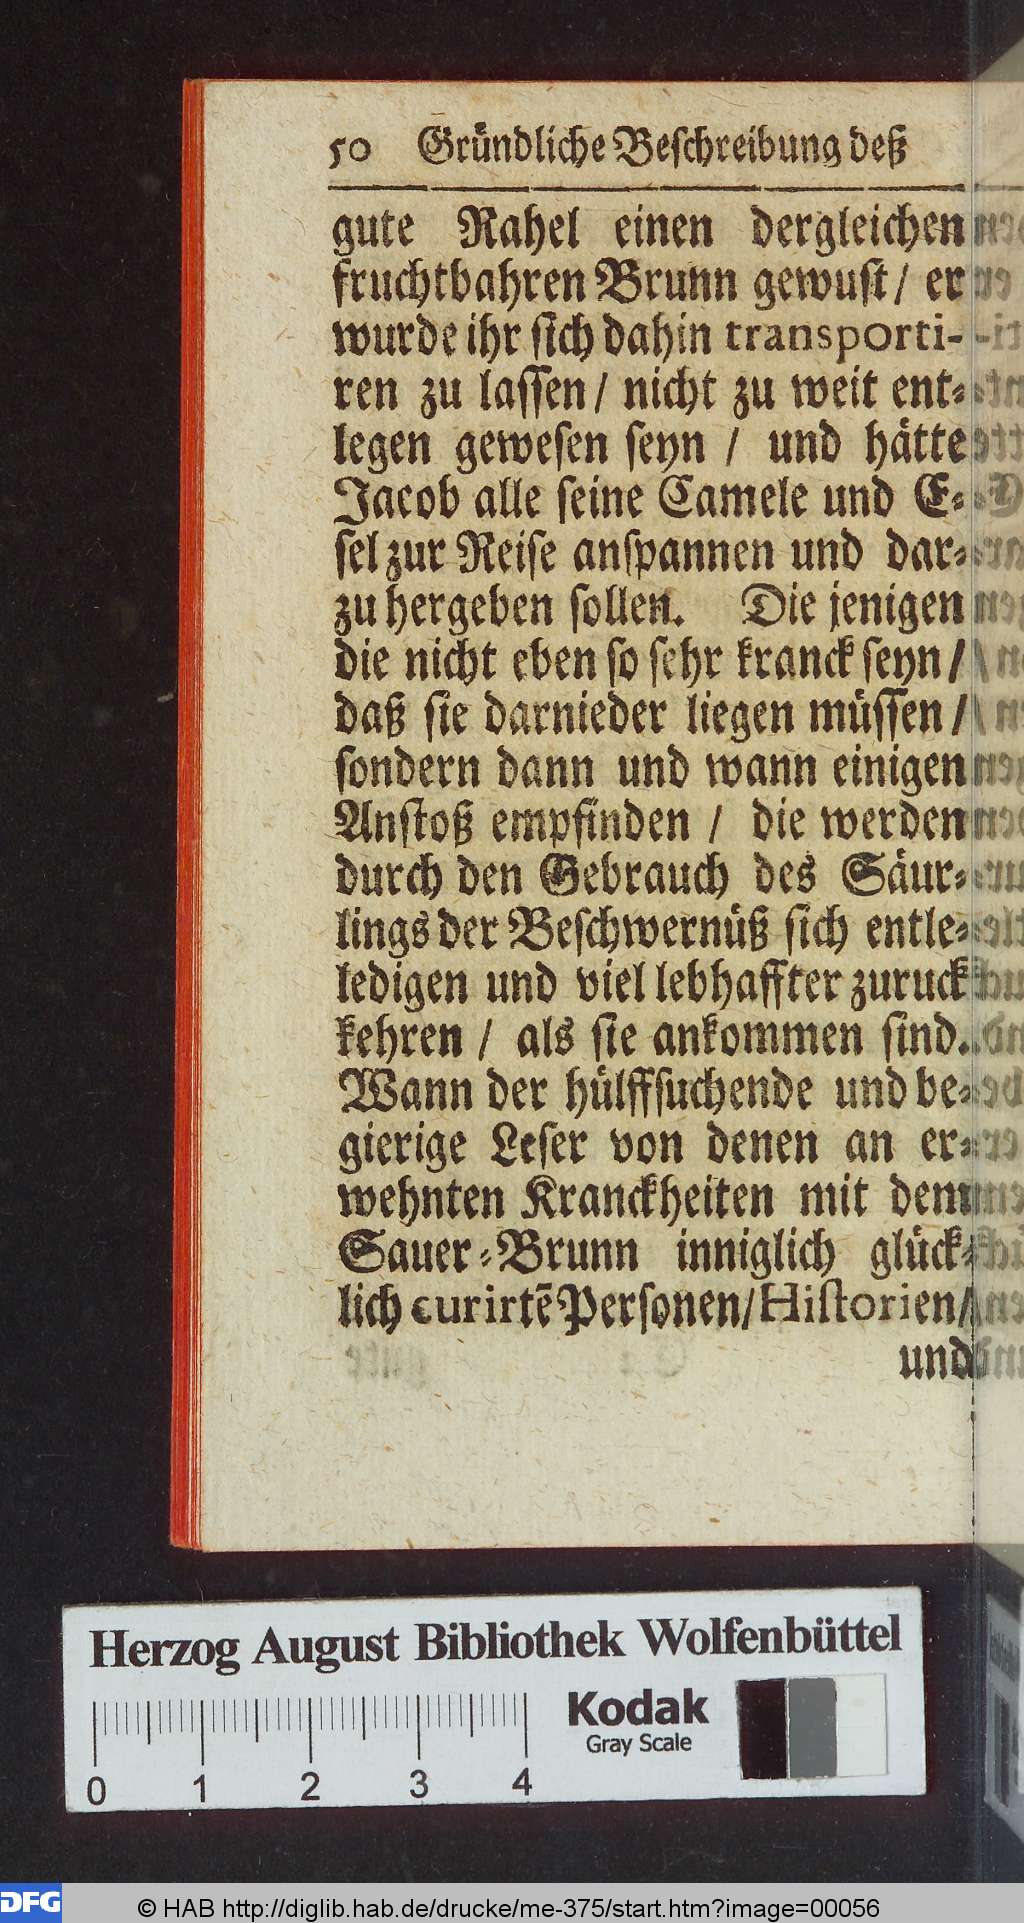 50 Gründliche Beschreibung deß
gute Rahel einen dergleichen
fruchtbahren Brunn gewust / er
wurde ihr sich dahin transporti-
ren zu lassen / nicht zu weit ent-
legen gewesen seyn / und hätte
Jacob alle seine Camele und E-
sel zur Reise anspannen und dar-
zu hergeben sollen. Die jenigen
die nicht eben so sehr kranck seyn /
daß sie darnieder liegen müssen /
sondern dann und wann einigen
Anstoß empfinden / die werden
durch den Gebrauch des Säur-
lings der Beschwernüß sich entle-
ledigen und viel lebhaffter zuruck
kehren / als sie ankommen sind.
Wann der hülffsuchende und be-
gierige Leser von denen an er-
wehnten Kranckheiten mit dem
Sauer-Brunn inniglich glück-
lich curirtē Personen / Historien /
und
Herzog August Bibliothek Wolfenbüttel
Kodak
Gray Scale
0 1 2 3 4
DFG © HAB http://diglib.hab.de/drucke/me-375/start.htm?image=00056